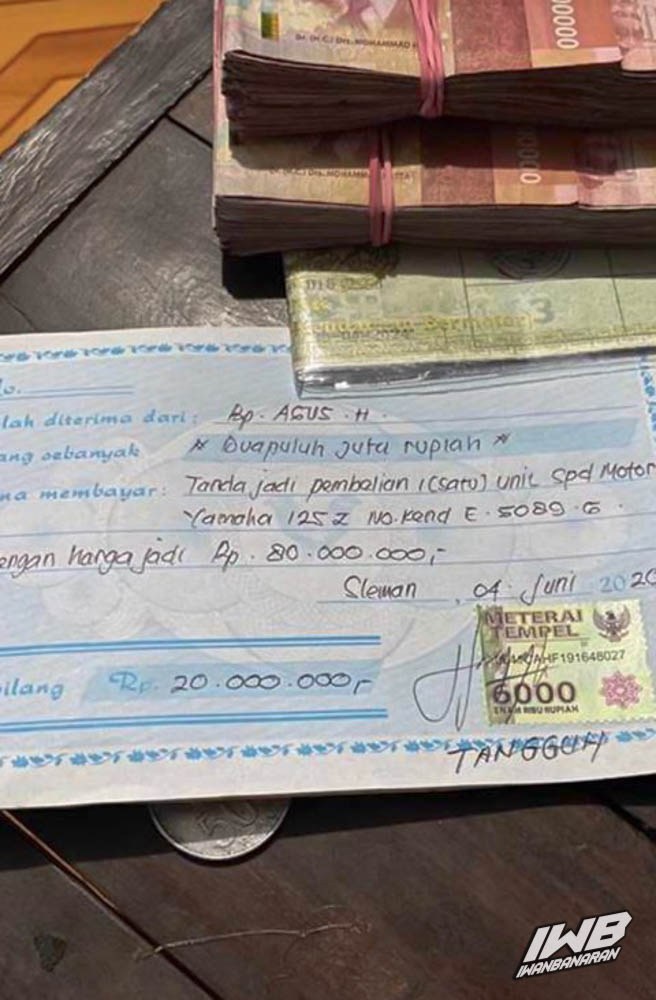 Dr. (H.C.) Drs. MOHAMMAD H
00000
0000
3
o.
lah diterima dari : Bp. AGUS . H .
ang sebanyak " Duapuluh juta rupiah "
na membayar : Tanda jadi pembelian 1 (satu) unit Spd Motor
Yamaha 125 Z No. Kend E . 5089 . G .
engan harga jadi Rp . 80.000.000,-
Sleman , 04 Juni 2020
METERAI
TEMPEL
AHF191648027
6000
ENAM RIBU RUPIAH
ilang Rp. 20.000.000,-
TANGGUH
IWB
IWANBANARAN